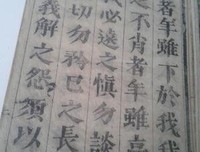 者年雖下於我我
之不肖者年雖嘉
我必遠之慎勿談
切勿矜己之長
我解之怨須以